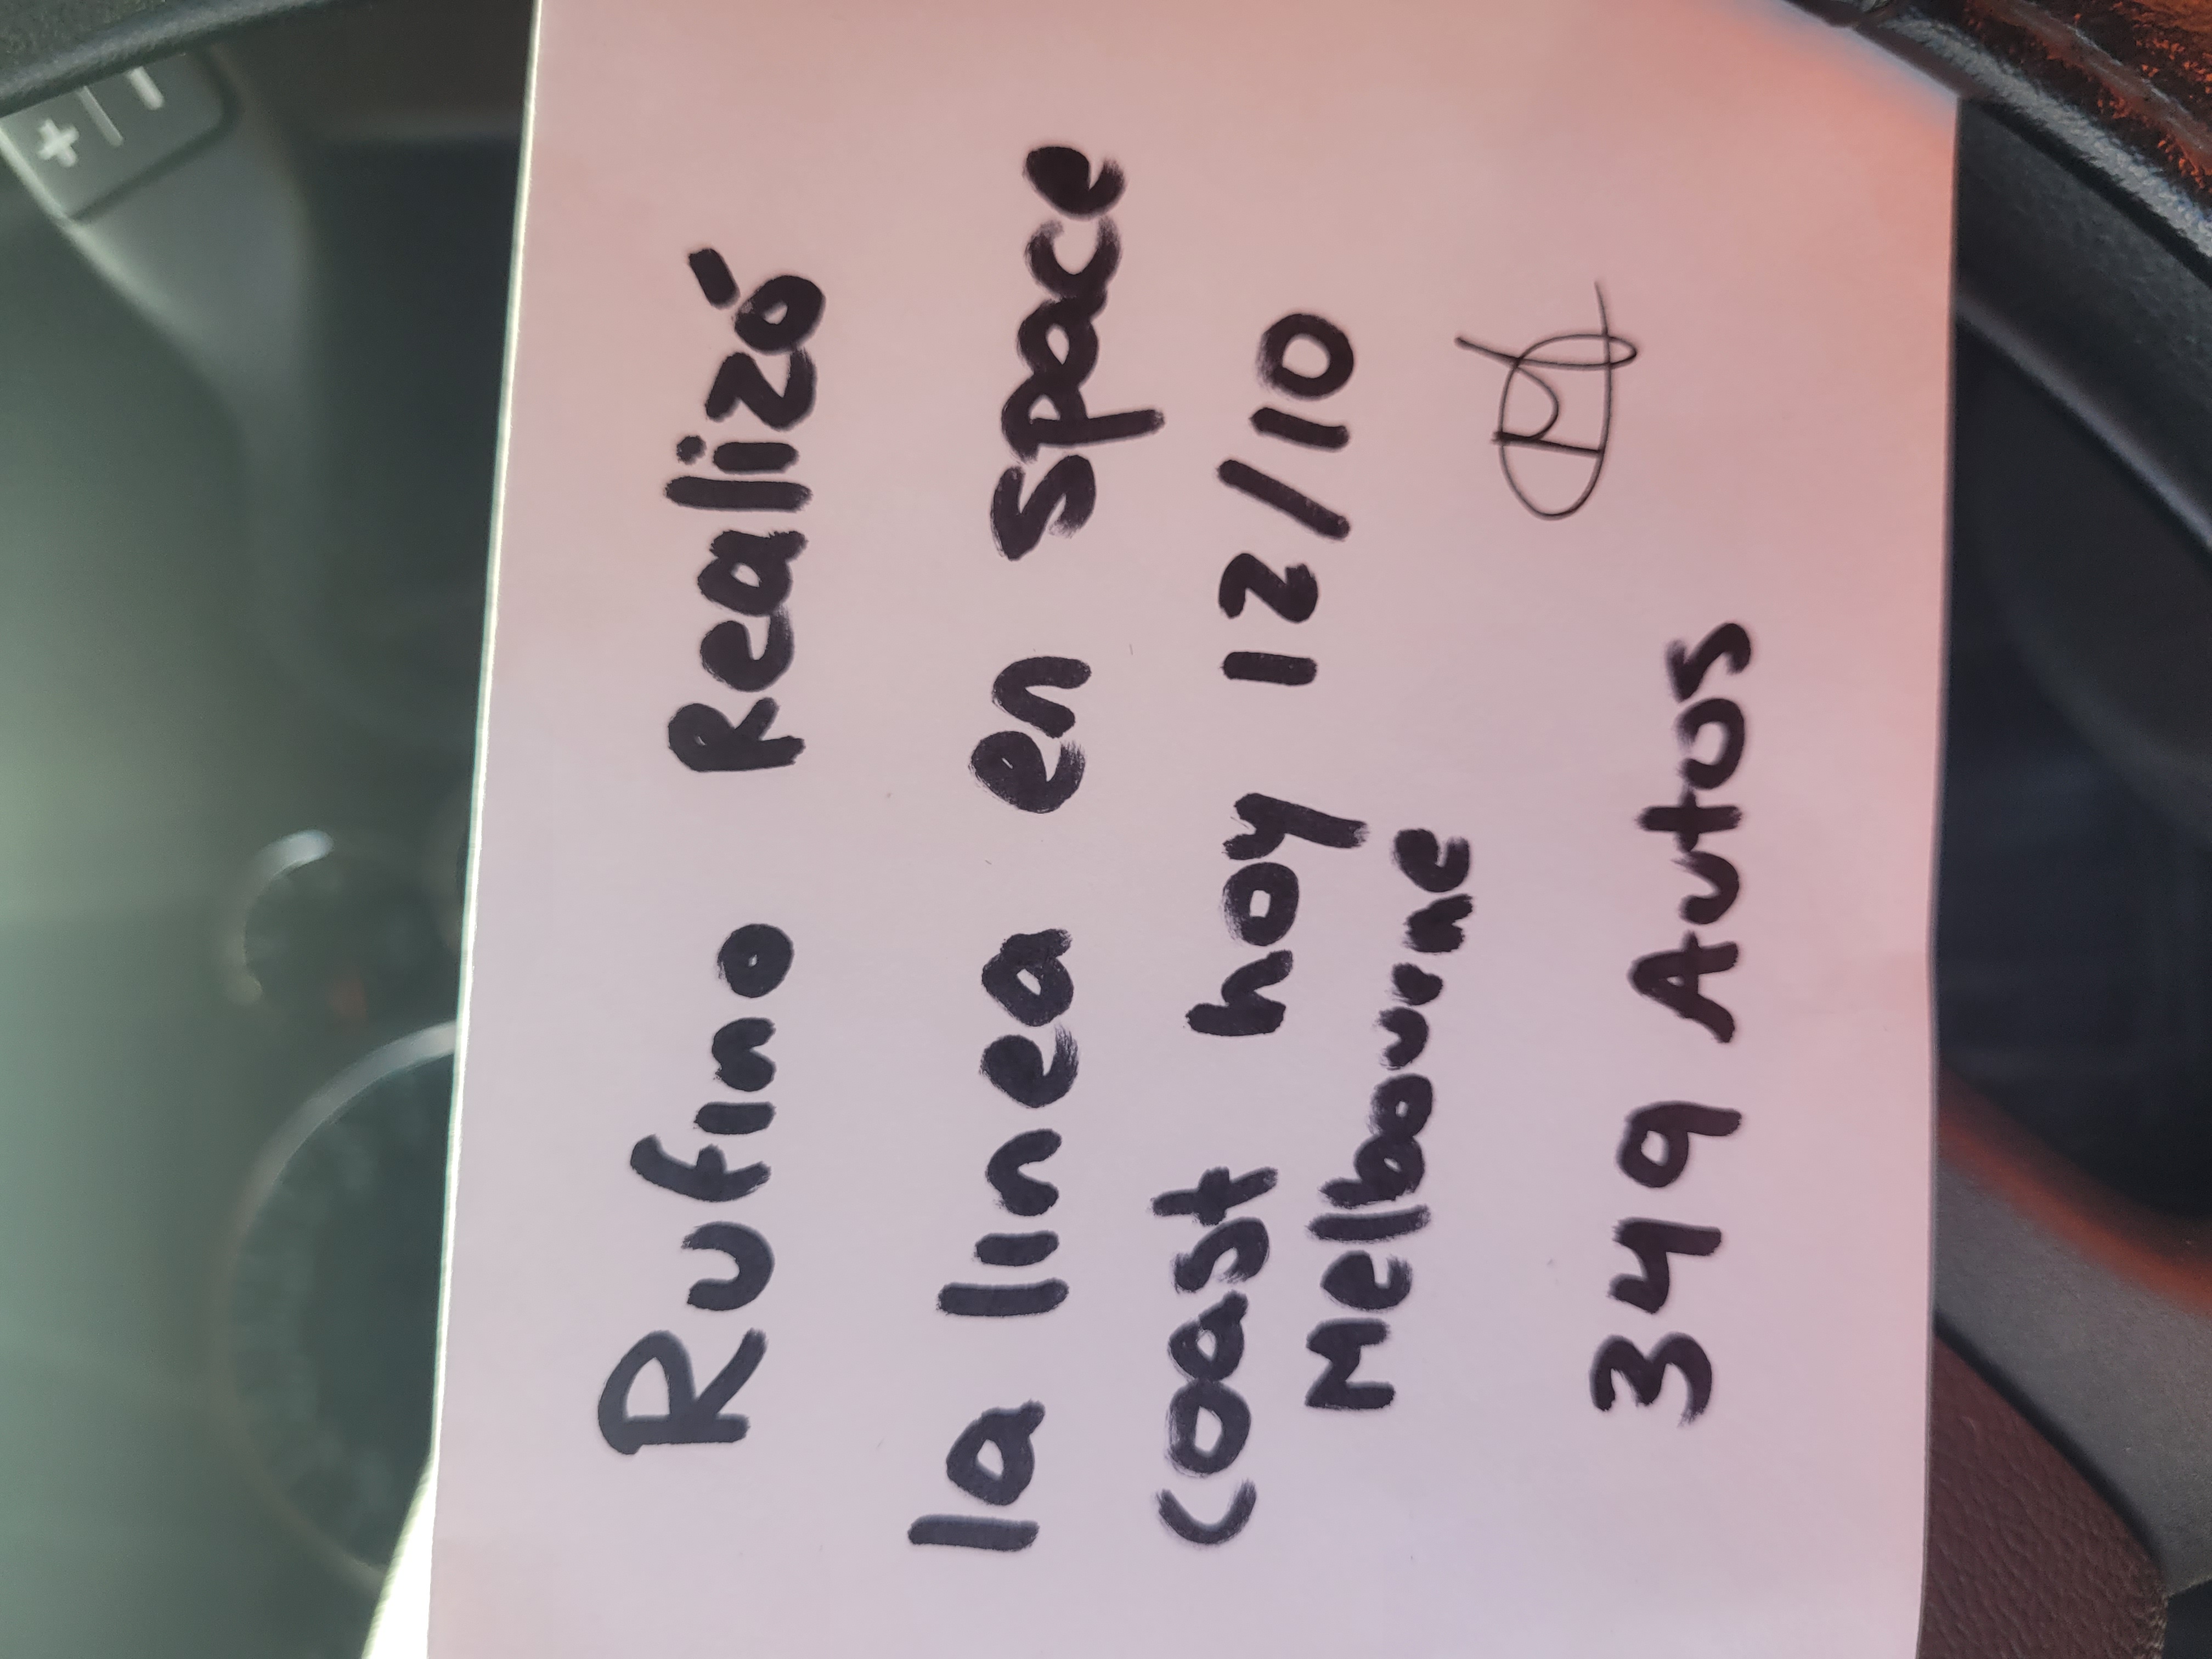 Rufino Realizó
la linea en space
coast hoy 12/10
Melbourne
349 Autos